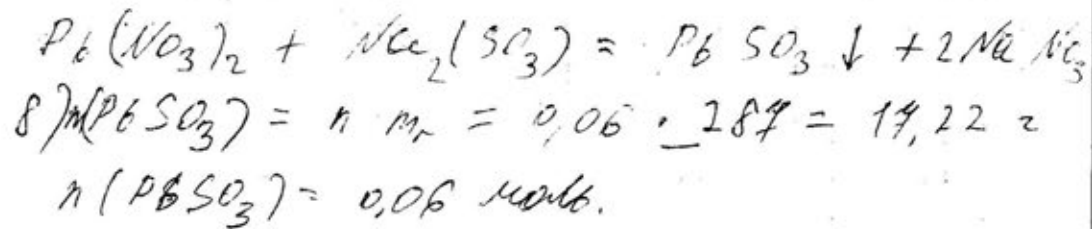 Pb(NO₃)₂ + Na₂(SO₃) = PbSO₃↓ + 2NaNO₃
8) m(PbSO₃) = n · mᵣ = 0,06 · 287 = 17,22 г
n(PbSO₃) = 0,06 моль.